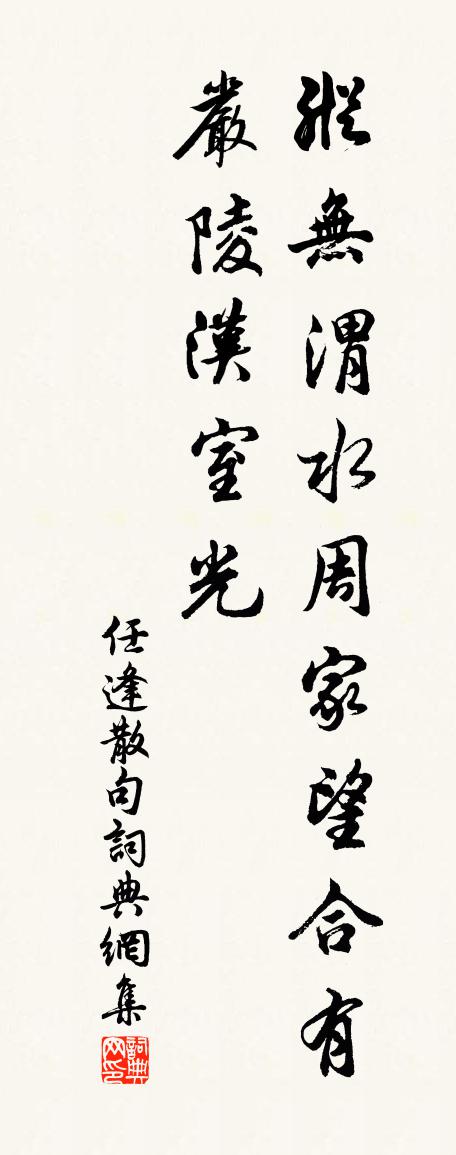 縱無渭水周家望合有
嚴陵漢室光
任逢散句詞典網集
詞典网印